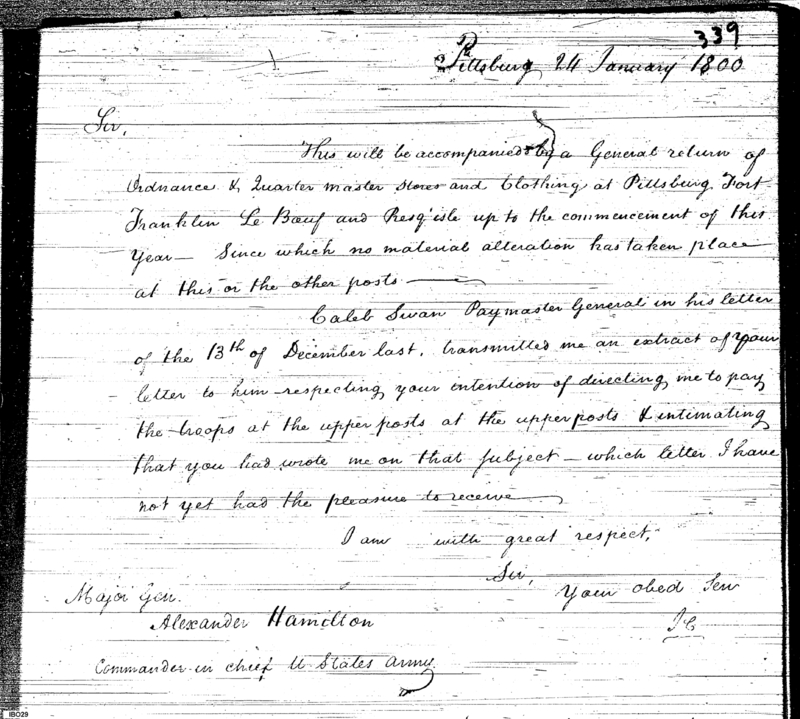 339
Pittsburg 24 January 1800
Sir,
This will be accompanied by a General return of
Ordnance & Quarter master Stores and Clothing at Pittsburg Fort
Franklin Le Bœuf and Presq'isle up to the commencement of this
Year— Since which no material alteration has taken place
at this or the other posts—
Caleb Swan Paymaster General in his letter
of the 13th of December last, transmitted me an extract of your
letter to him respecting your intention of directing me to pay
the troops at the upper posts at the upper posts & intimating
that you had wrote me on that subject — which letter I have
not yet had the pleasure to receive—
I am with great respect,
Sir,
Your obed Ser
JC
Major Gen.
Alexander Hamilton
Commander in chief U States Army.
IBO29